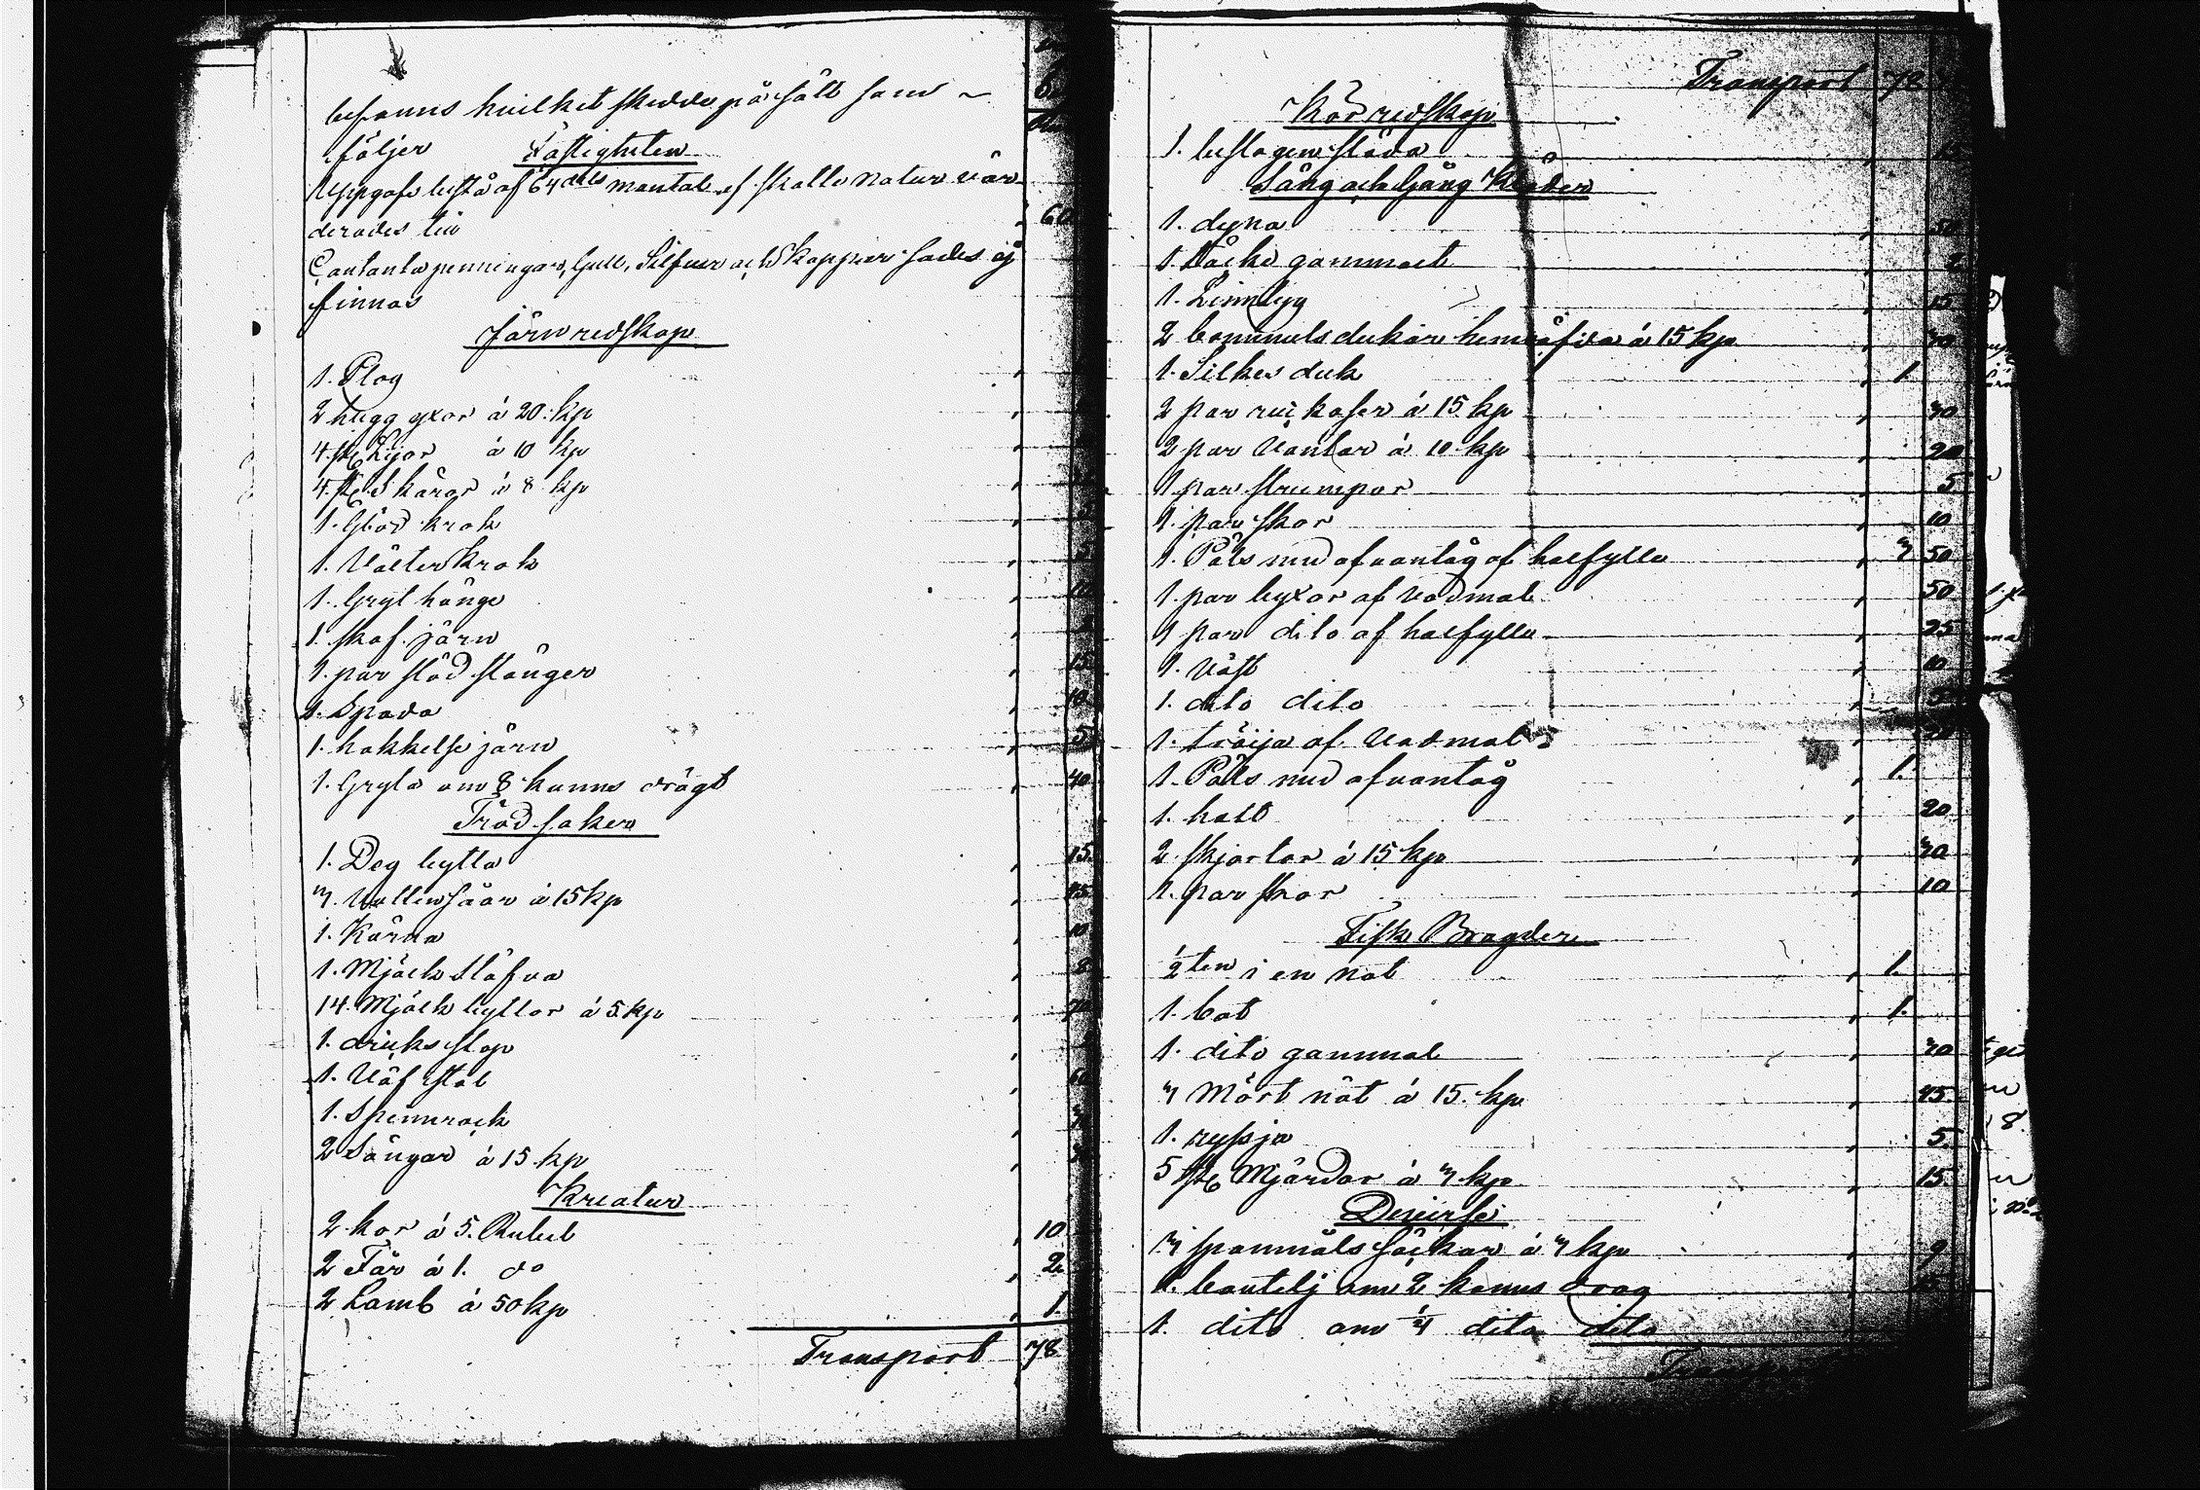 befanns hvilket skedde på sätt som ~
följer Fastigheten
Uppgafs bestå af 64 dels mantal af skatte natur vär-
derades till 60
Contanta penningar, Gull, Silfver och Koppar sades ej
finnas
Järnredskap
1. Plog
2 hugg yxor á 20. kp
4. st. Lijor á 10 kp
4. st. Skäror á 8 kp
1. Glöd krok
1. Välter krok
1. Gryt hänge 10
1. skaf. järn
1. par stöd stänger 15
1. Spada 10
1. hakkelse järn 5
1. Gryta om 8 kanns drägt 40
Träd saker
1. Deg bytta 15
3. Vatten såar á 15 kp 45
1. Kärna 10
1. Mjölk stäfva 8
14. Mjölk byttor á 5 kp 70
1. dricks stop
1. Väf stol
1. Spinnrock
2 Sängar á 15 kp
Kreatur
2 kor á 5. Rubel 10
2 Får á 1. do 2
2 Lamb á 50 kp 1
Transport 78
Transport 78
Kör redskap
1. beslagen släda
Säng och Gång Kläder
1. dyna 50
1. täcke gammalt
1. Linntyg 15
2 bommuls dukar hemväfda á 15 kp 30
1. Silkes duk 1.
2 par á 15 kp 30
2 par Vantar á 10 kp 20
1 par strumpor 5
1. par skor 10
1. Päls med ofvantåg af halfylle 3 50
1. par byxor af vadmal 50
1 par dito af halfylle 25
1. väst 10
1. dito dito
1. tröija af Vadmal
1. Päls med ofvantåg 1.
1. hatt 20
2 skjortor á 15 kp 30
1. par skor 10
Fisk Bragder
½ ten i en not 1.
1. båt 1.
1. dito gammal 30
3 Mört nät á 15. kp 45
1. ryssja 5
5 st. Mjärdar á 3 kp 15
Diverse
3 spanmåls säckar á 3 kp 9
1. boutelj om 2 kanns drag
1. dito om ¼ dito dito
Transport